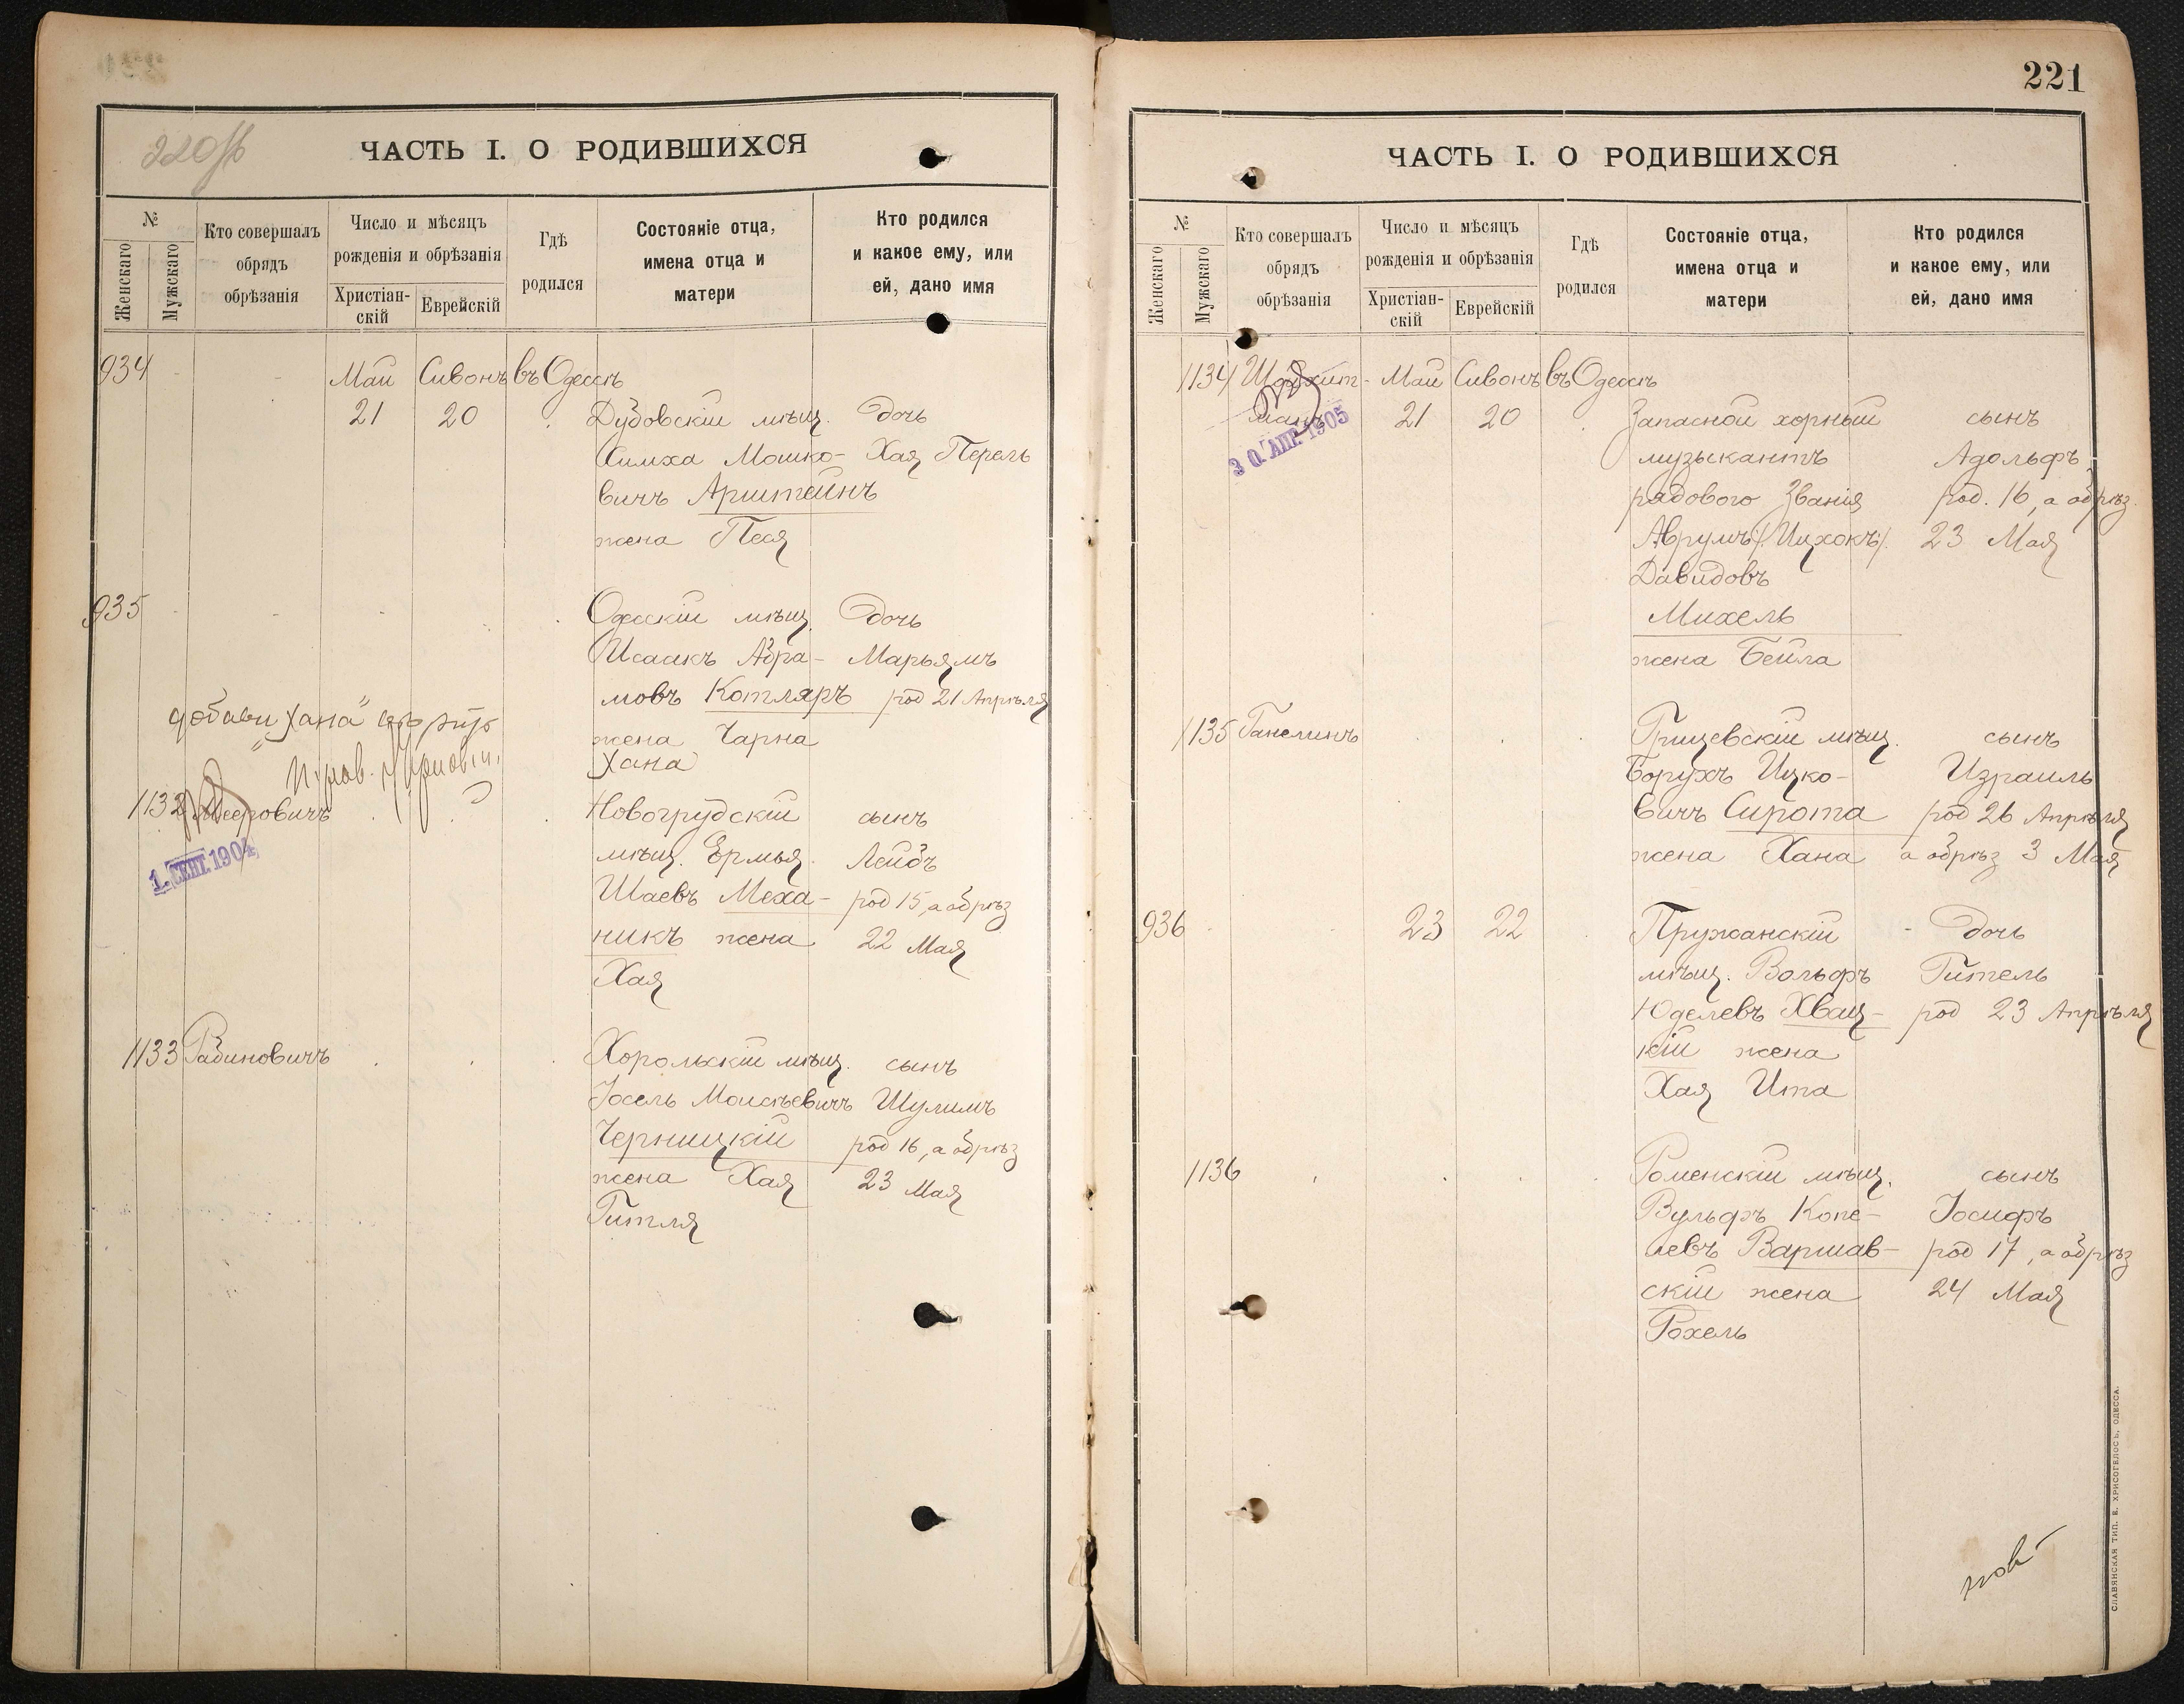 220об
ЧАСТЬ I. О РОДИВШИХСЯ
№
Женскаго
Мужскаго
Кто совершалъ
обрядъ
обрѣзанія
Число и мѣсяцъ
рожденія и обрѣзанія
Христіан-
скій
Еврейскій
Гдѣ
родился
Состояніе отца,
имена отца и
матери
Кто родился
и какое ему, или
ей, дано имя
934 Май Сивонъ въ Одессѣ
21 20 Дубовскій мѣщ. дочь
Симха Мошко- Хая Перель
вичъ Арштейнъ
жена Песя
935 Одесскій мѣщ. дочь
Исаакъ Абра- Марьямъ
мовъ Котляръ род 21 Апрѣля
жена Чарна
Хана
добавл „Хана"
1132 Мееровичъ Новогрудскій сынъ
1. СЕНТ. 1904
мѣщ. Ермья Лейбъ
Шаевъ Меха- род 15, а обрѣз
никъ жена 22 Мая
Хая
1133 Рабиновичъ Хорольскій мѣщ. сынъ
Іосель Моисѣевичъ Шулимъ
Черницкій род 16, а обрѣз
жена Хая 23 Мая
Гитля
221
ЧАСТЬ I. О РОДИВШИХСЯ
№
Женскаго
Мужскаго
Кто совершалъ
обрядъ
обрѣзанія
Число и мѣсяцъ
рожденія и обрѣзанія
Христіан-
скій
Еврейскій
Гдѣ
родился
Состояніе отца,
имена отца и
матери
Кто родился
и какое ему, или
ей, дано имя
1134 Май Сивонъ въ Одессѣ
манъ 21 20 Запасной хорный сынъ
3 0. АПР. 1905
музыкантъ Адольфъ
рядового званія род. 16, а обрѣз.
Аврумъ /:Ицхокъ:/ 23 Мая
Давидовъ
Михель
жена Бейла
1135 Ганелинъ Грицевскій мѣщ. сынъ
Борухъ Ицко- Израиль
вичъ Сирота род 26 Апрѣля
жена Хана а обрѣз 3 Мая
936 23 22 Пружанскій дочь
мѣщ. Вольфъ Гитель
Юделевъ Хвац- род 23 Апрѣля
кій жена
Хая Ита
1136 Роменскій мѣщ. сынъ
Вульфъ Копе- Іосифъ
левъ Варшав- род 17, а обрѣз
скій жена 24 Мая
Рохель
СЛАВЯНСКАЯ ТИП. Е. ХРИСОГЕЛОСЪ, ОДЕССА.